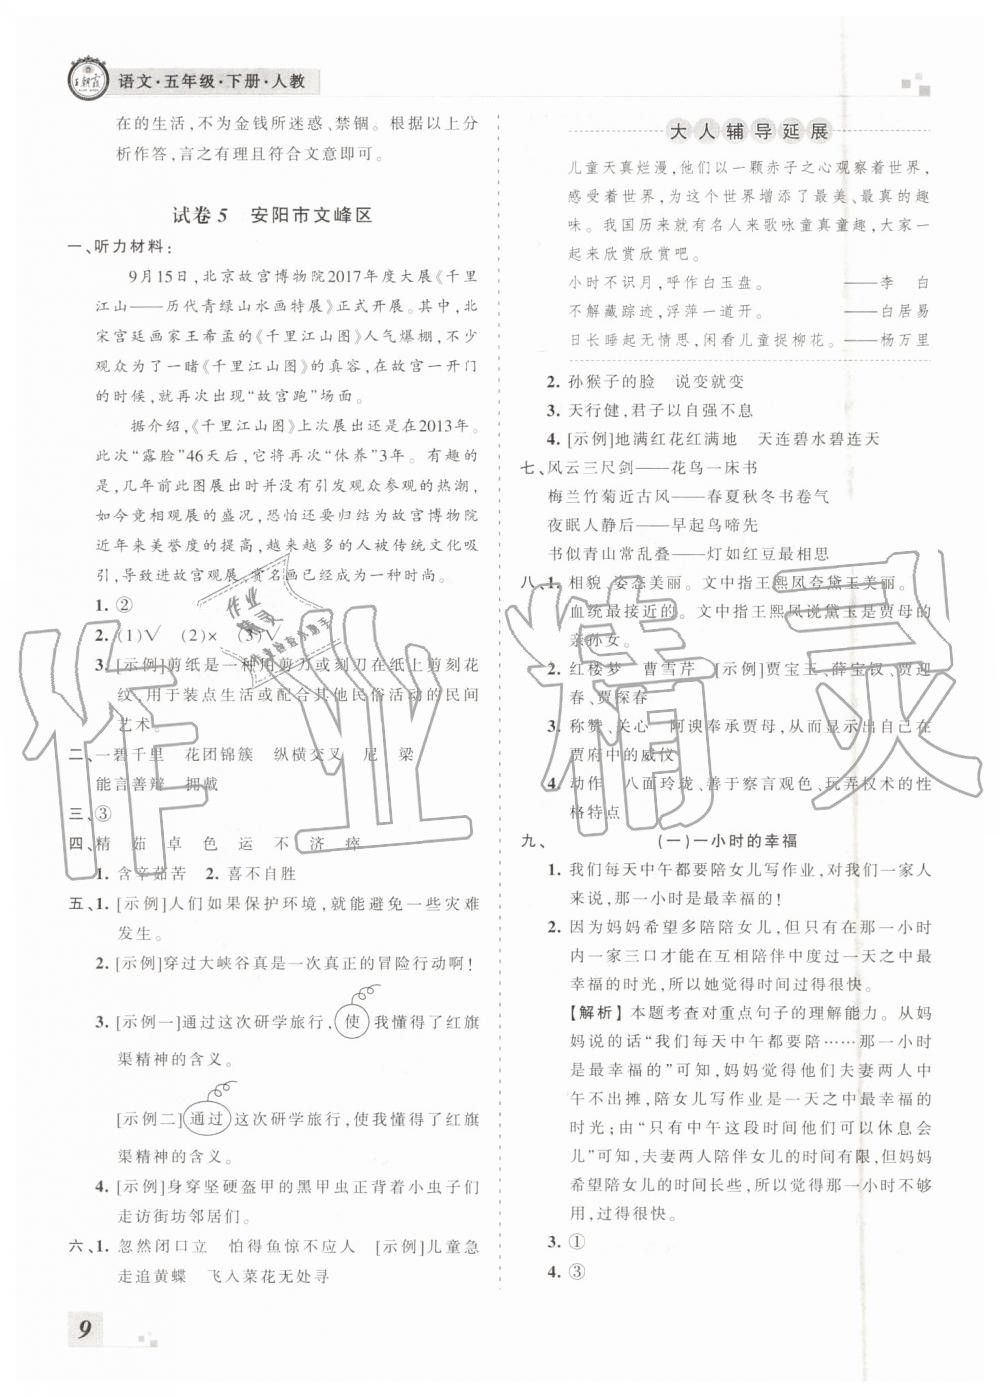 王朝霞
语文·五年级·下册·人教
在的生活,不为金钱所迷惑、禁锢。根据以上分
析作答,言之有理且符合文意即可。
试卷5 安阳市文峰区
一、听力材料:
9月15日,北京故宫博物院2017年度大展《千里
江山——历代青绿山水画特展》正式开展。其中,北
宋宫廷画家王希孟的《千里江山图》人气爆棚,不少
观众为了一睹《千里江山图》的真容,在故宫一开门
的时候,就再次出现“故宫跑”场面。
据介绍,《千里江山图》上次展出还是在2013年。
此次“露脸”46天后,它被要再次“休养”3年。有趣的
是,几年前此图展出时并没有引发观众参观的热潮,
如今竟相观展的盛况,恐怕还要归结为故宫博物院
近年来美誉度的提高,越来越多的人被传统文化吸
引,导致进故宫观展、赏名画已经成为一种时尚。
1. ②
2. (1)√ (2)× (3)√
3. [示例]剪纸是一种用剪刀或刻刀在纸上剪刻花
纹,用于装点生活或配合其他民俗活动的民间
艺术。
二、一碧千里 花团锦簇 纵横交叉 尼 梁
能言善辩 拥戴
三、③
四、精 茹 卓 色 运 不 济 瘁
1. 含辛茹苦 2. 喜不自胜
五、1. [示例]人们如果保护环境,就能避免一些灾难
发生。
2. [示例]穿过大峡谷真是一次真正的冒险行动啊!
3. [示例一]通过这次研学旅行,使我懂得了红旗
渠精神的含义。
[示例二]通过这次研学旅行,使我懂得了红旗
渠精神的含义。
4. [示例]身穿坚硬盔甲的黑甲虫正背着小虫子们
走访街坊邻居们。
六、1. 忽然闭口立 怕得鱼惊不应人 [示例]儿童急
走追黄蝶 飞入菜花无处寻
9
大人辅导延展
儿童天真烂漫,他们以一颗赤子之心观察着世界,
感受着世界,为这个世界增添了最美、最真的趣
味。我国历来就有名人来歌咏童真童趣,一起
来欣赏欣赏吧。
小时不识月,呼作白玉盘。 ——李 白
不解藏踪迹,浮萍一道开。 ——白居易
日长睡起无情思,闲看儿童捉柳花。——杨万里
2. 孙猴子的脸 说变就变
3. 天行健,君子以自强不息
4. [示例]地满红花红满地 天连碧水碧连天
七、风云三尺剑——花鸟一床书
梅兰竹菊近古风——春夏秋冬书卷气
夜眠人静后——早起鸟啼先
书似青山常乱叠——灯如红豆最相思
八、1. 相貌、姿态美丽。文中指王熙凤夸黛玉美丽。
血统最接近的。文中指王熙凤说黛玉是贾母的
亲孙女。
2. 红楼梦 曹雪芹 [示例]贾宝玉、薛宝钗、贾迎
春、贾探春
3. 称赞、关心 阿谀奉承贾母,从而显示出自己在
贾府中的威仪
4. 动作 八面玲珑、善于察言观色、玩弄权术的性
格特点
九、 (一)一小时的幸福
1. 我们每天中午都要陪女儿写作业,对我们一家人
来说,那一小时是最幸福的!
2. 因为妈妈希望多陪陪女儿,但只有在那一小时
内一家三口才能在互相陪伴中度过一天之中最
幸福的时光,所以她觉得时间过得很快。
【解析】本题考查对重点句子的理解能力。从妈
妈说的话“我们每天中午都要陪……那一小时
是最幸福的”可知,妈妈觉得他们夫妻两人中
午不出摊,陪女儿写作业是一天之中最幸福的
时光;由“只有中午这段时间他们可以休息会
儿”可知,夫妻两人陪伴女儿的时间有限,但妈妈
希望陪女儿的时间长些,所以那一小时不够
用,过得很快。
3. ①
4. ③
作业精灵
作业
精灵